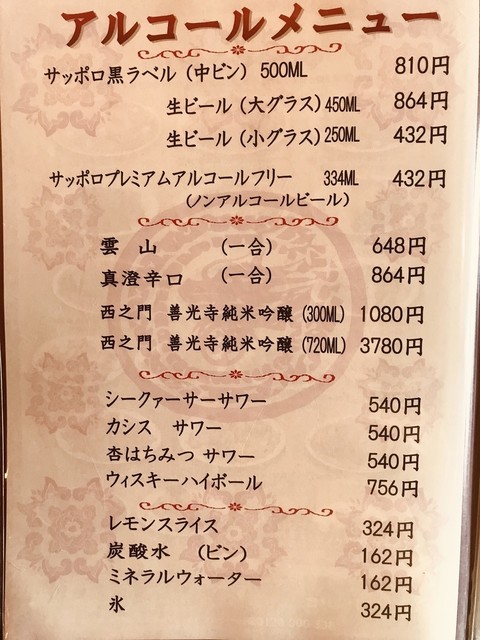 アルコールメニュー
サッポロ黒ラベル（中ビン） 500ML 810円
生ビール（大グラス）450ML 864円
生ビール（小グラス）250ML 432円
サッポロプレミアムアルコールフリー 334ML 432円
（ノンアルコールビール）
雲 山 （一合） 648円
真澄辛口 （一合） 864円
西之門 善光寺純米吟醸（300ML） 1080円
西之門 善光寺純米吟醸（720ML） 3780円
シークァーサーサワー 540円
カシス サワー 540円
杏はちみつ サワー 540円
ウィスキーハイボール 756円
レモンスライス 324円
炭酸水 （ビン） 162円
ミネラルウォーター 162円
氷 324円